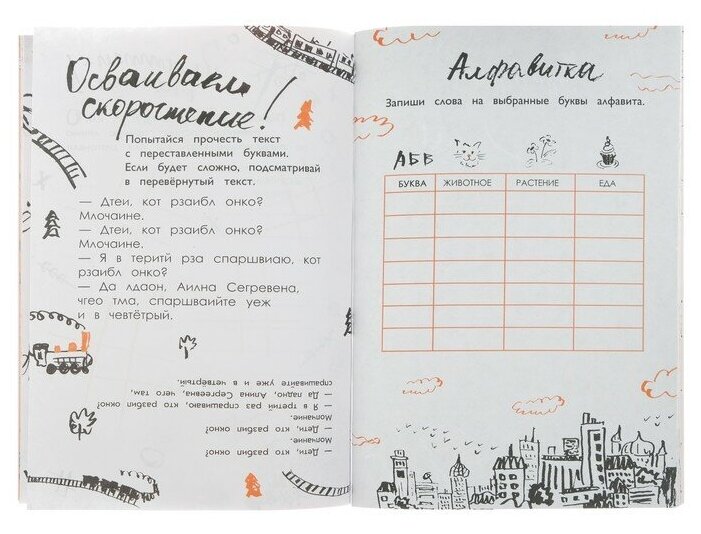 Осваиваем
скорочтение!
Попытайся прочесть текст
с переставленными буквами.
Если будет сложно, подсматривай
в перевёрнутый текст.
— Дтеи, кот рзаибл онко?
Млочаине.
— Дтеи, кот рзаибл онко?
Млочаине.
— Я в теритй рза спаршвиаю, кот
рзаибл онко?
— Да лдаон, Аилна Сегревена,
чгео тма, спаршвайите уеж
и в чевтётрый.
— Дети, кто разбил окно?
Молчание.
— Дети, кто разбил окно?
Молчание.
— Я в третий раз спрашиваю, кто разбил окно?
— Да ладно, Алина Сергеевна, чего там,
спрашивайте уже и в четвёртый.
Алфавитка
Запиши слова на выбранные буквы алфавита.
АБВ
БУКВА ЖИВОТНОЕ РАСТЕНИЕ ЕДА